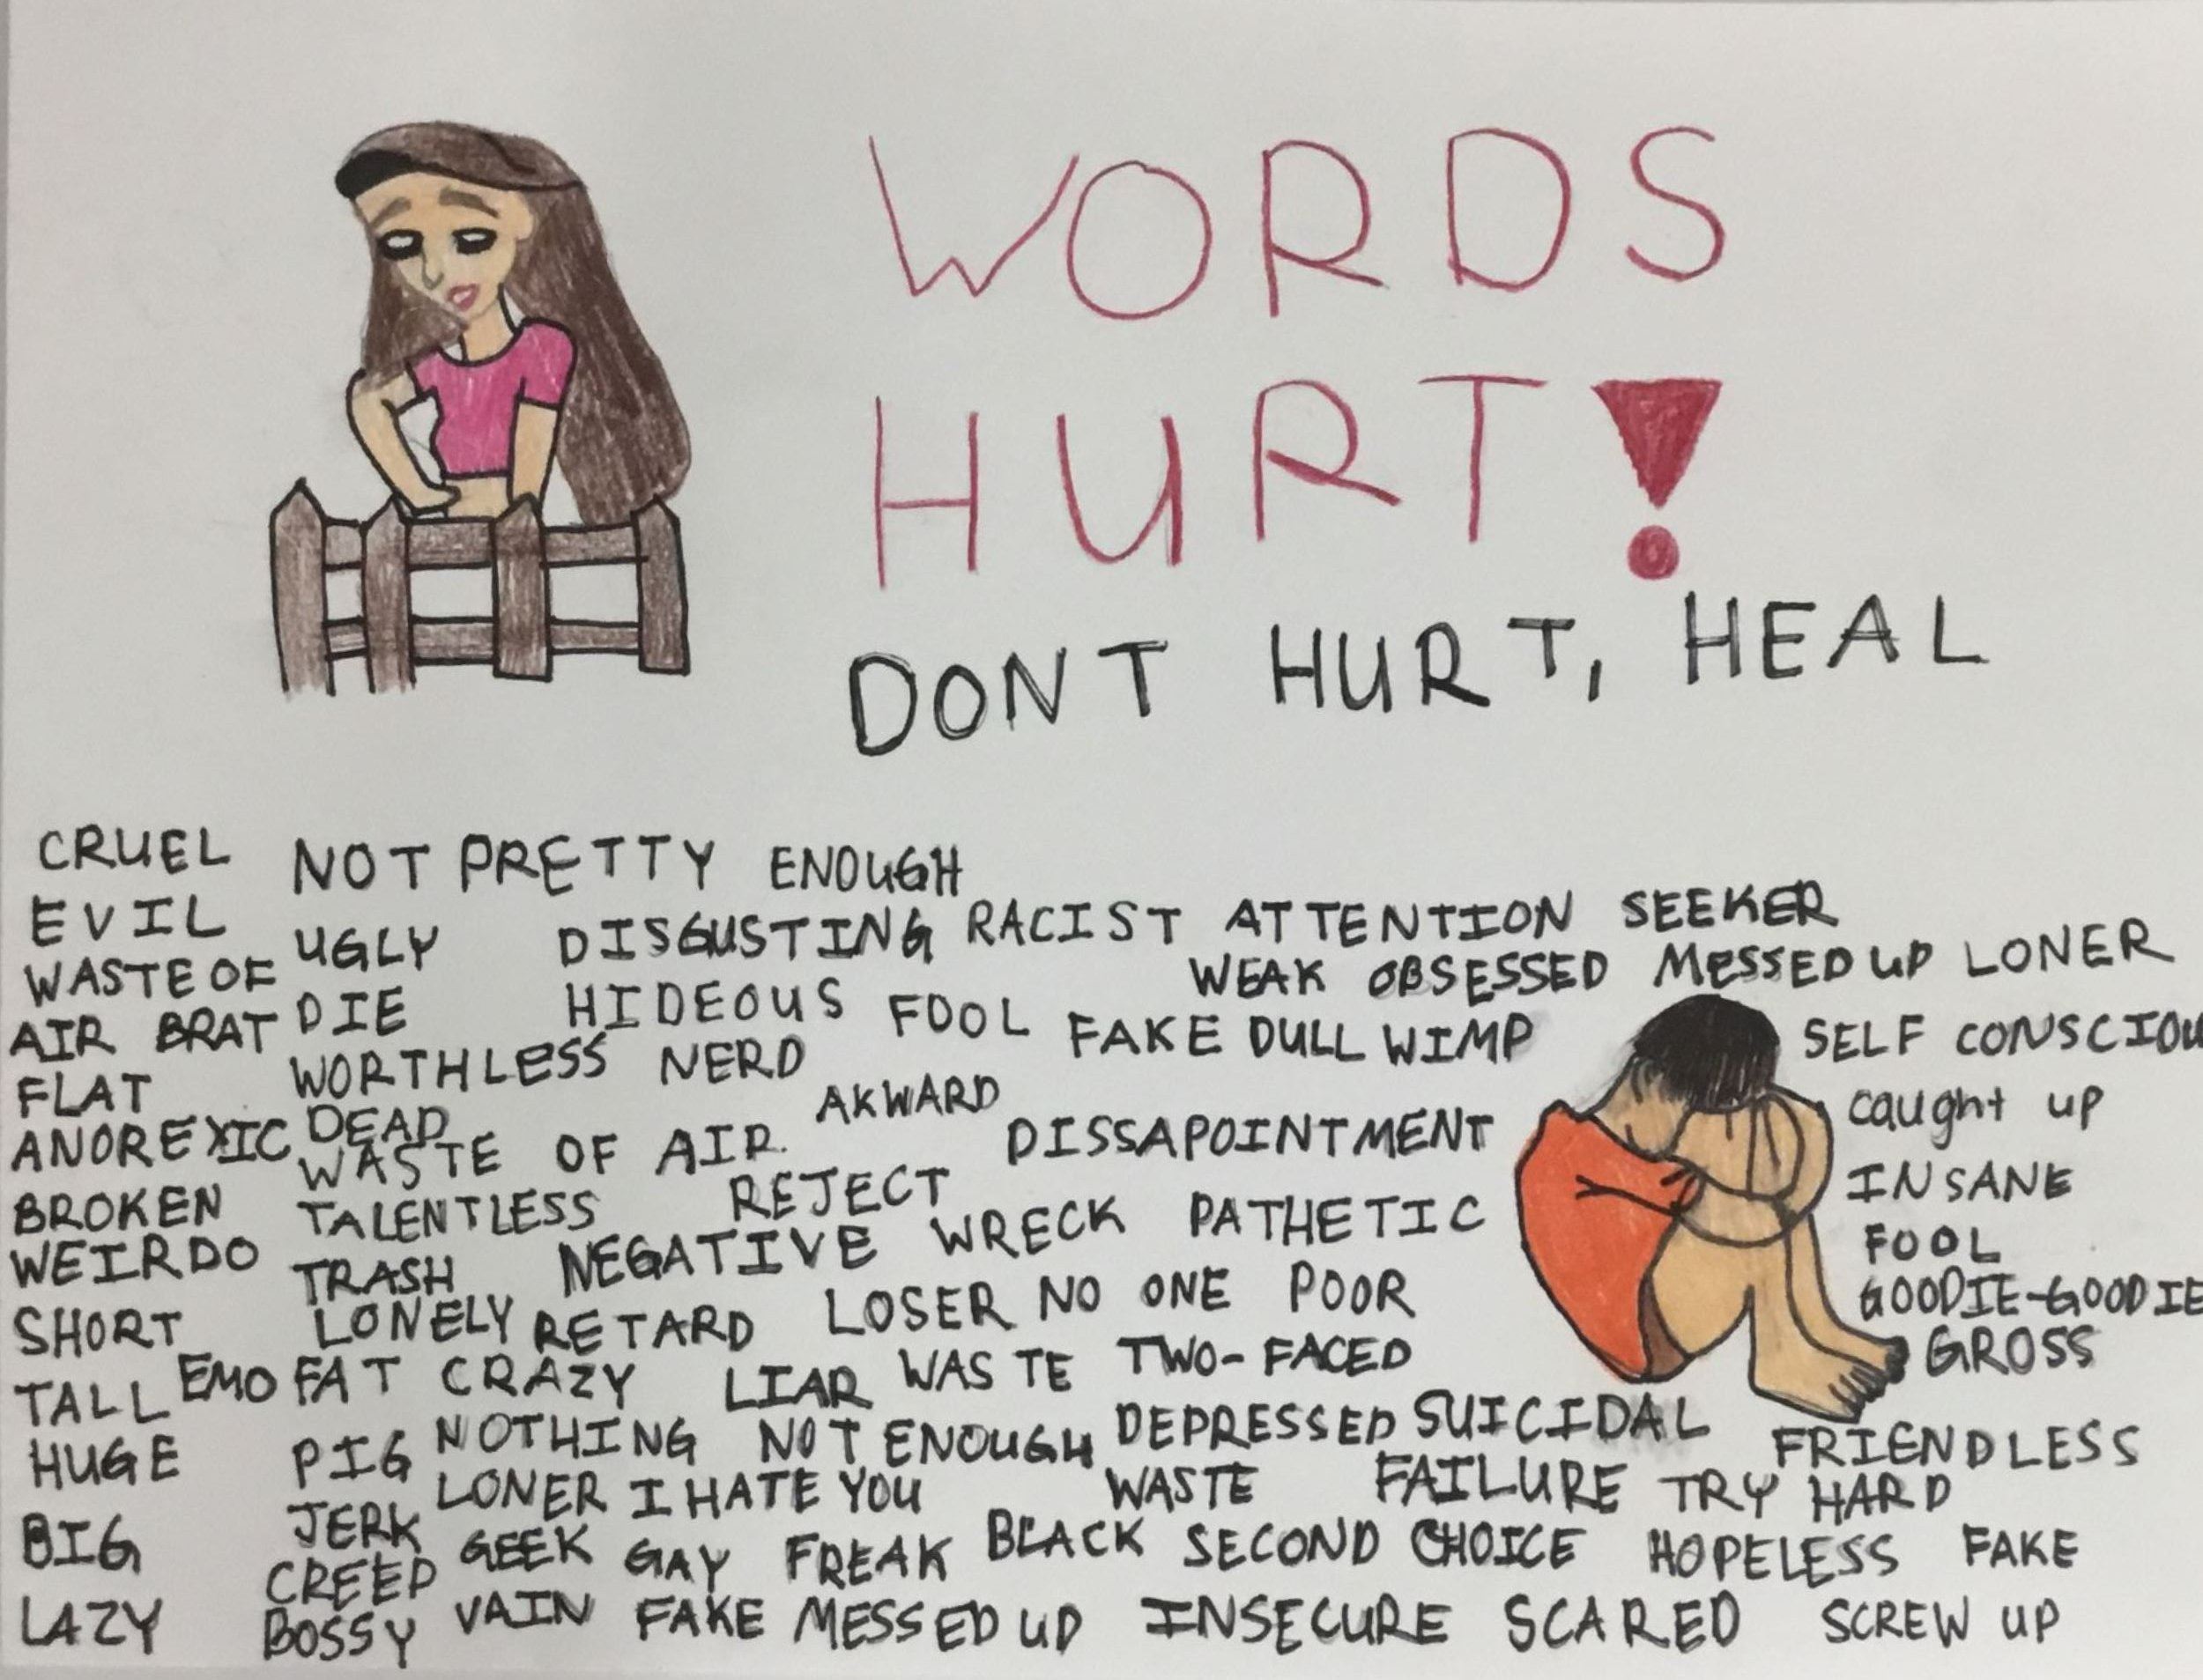 WORDS
HURT!
DONT HURT, HEAL
CRUEL NOT PRETTY ENOUGH
EVIL UGLY DISGUSTING RACIST ATTENTION SEEKER
WASTE OF DIE HIDEOUS FOOL WEAK OBSESSED MESSED UP LONER
AIR BRAT WORTHLESS NERD FAKE DULL WIMP SELF CONSCIOU
FLAT DEAD AKWARD caught up
ANOREXIC WASTE OF AIR DISSAPOINTMENT INSANE
BROKEN TALENTLESS REJECT WRECK PATHETIC FOOL
WEIRDO TRASH NEGATIVE GOODIE-GOODIE
SHORT LONELY RETARD LOSER NO ONE POOR GROSS
TALL EMO FAT CRAZY LIAR WASTE TWO-FACED
HUGE PIG NOTHING NOT ENOUGH DEPRESSED SUICIDAL FRIENDLESS
LONER I HATE YOU WASTE FAILURE TRY HARD
BIG JERK GEEK GAY FREAK BLACK SECOND CHOICE HOPELESS FAKE
CREEP
LAZY BOSSY VAIN FAKE MESSED UP INSECURE SCARED SCREW UP